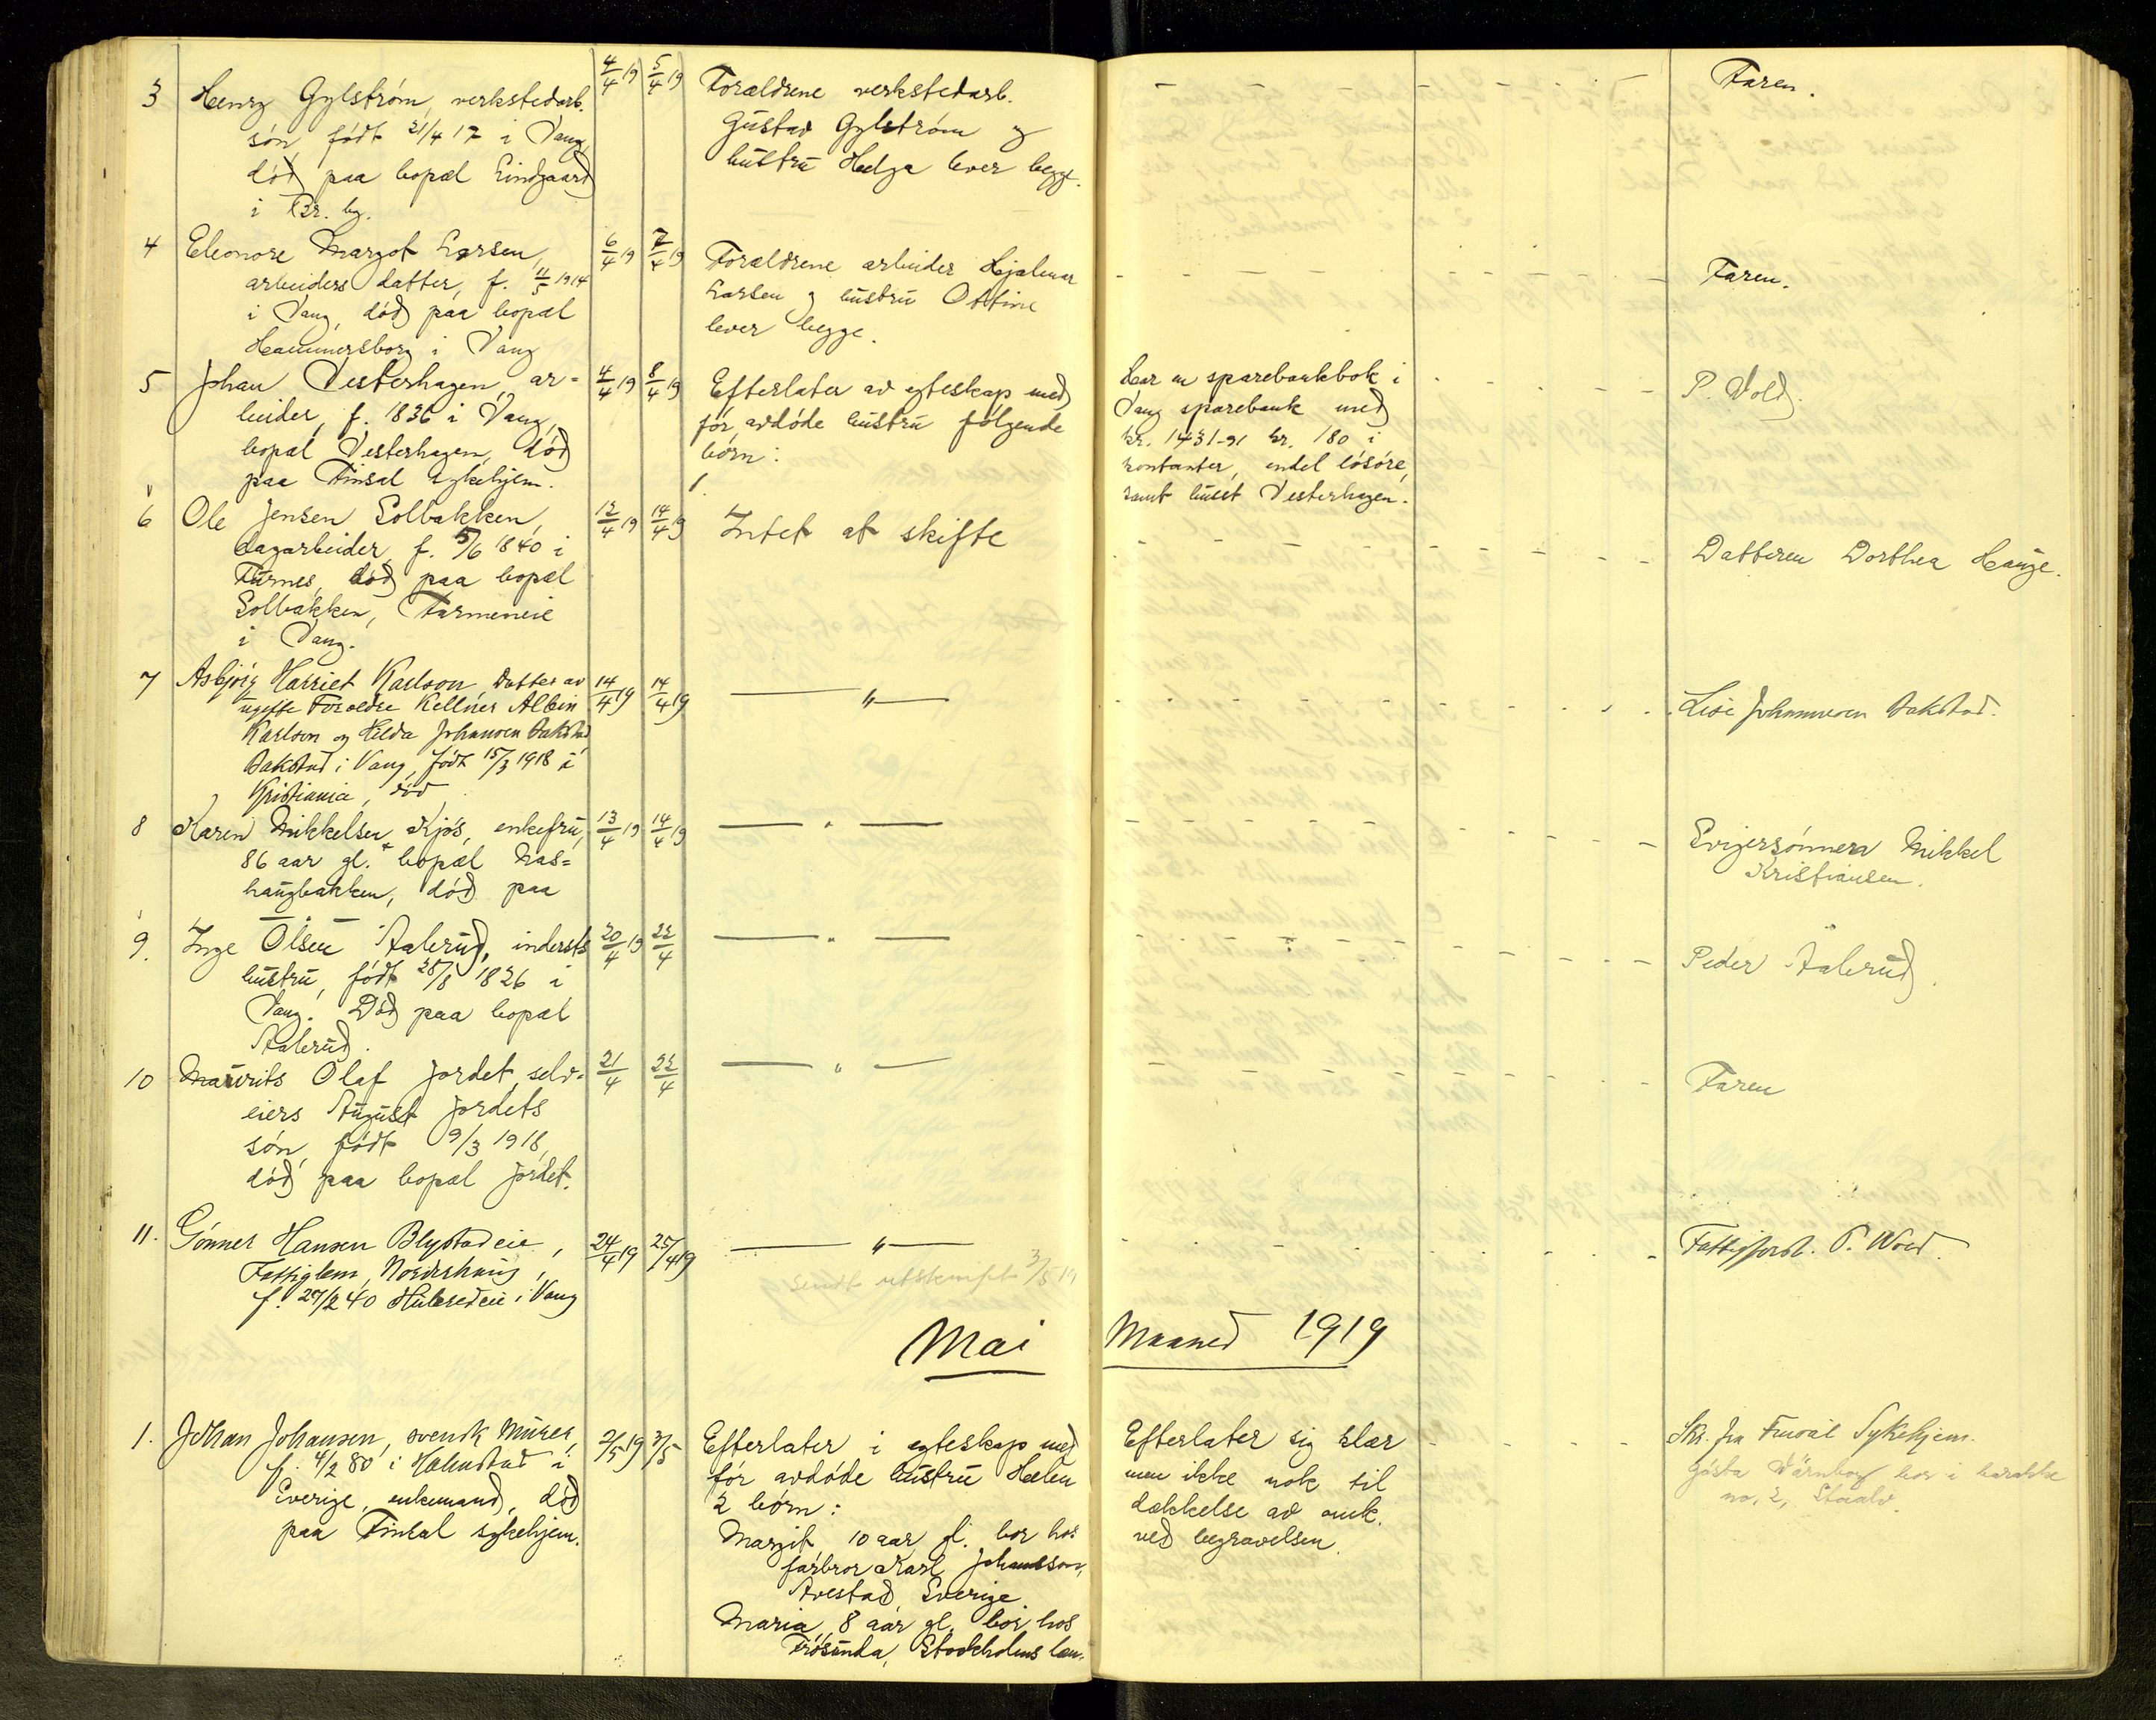 3 Henry Gylström, verkstedarb.
sön, födt 21/4 17 i Vang,
död paa bopæl Lindgaard
i Br. bg.
4/4 19 5/4 19
Forældrene verkstedarb.
Gustav Gylström og
hustru Helga lever begge.
Faren.
4 Eleonore Margot Larsen,
arbeiders datter, f. 4/5 1914
i Vang, död paa bopæl
Hammersborg i Vang
6/4 19 7/4 19
Forældrene arbeider Hjalmar
Larsen og hustru Ottine
lever begge.
Faren.
5 Johan Vesterhagen, ar-
beider, f. 1836 i Vang,
bopæl Vesterhagen, död
paa Finsal sykehjem.
4/4 19 8/4 19
Efterlater av egteskap med
för avdöde hustru følgende
börn:
1.
Har en sparebankbok i
Vang sparebank med
kr. 1431-91 kr. 180 i
kontanter, endel lösöre,
samt huset Vesterhagen.
P. Vold.
6 Ole Jensen Solbakken,
dagarbeider, f. 5/6 1840 i
Furnes, död paa bopæl
Solbakken, Farmeneie
i Vang.
12/4 19 14/4 19
Intet at skifte
Datteren Dorthea Hauge.
7 Asbjörg Harriet Karlson, datter av
ugifte Foreldre Kellner Albin
Karlson og Hilda Johansen Bakstad
Bakstad i Vang, født 15/3 1918 i
Kristiania, död
14/4 19 14/4 19
— " —
Lise Johannesen Bakstad.
8 Karen Mikkelsen Kjös, enkefru,
86 aar gl. bopæl Nas-
haugbakken, död paa
— " —
13/4 19 14/4 19
— " —
Svigersönnen Mikkel
Kristiansen.
9. Inge Olsen Aalerud, indersts
hustru, födt 28/8 1826 i
Vang. Död paa bopæl
Aalerud.
20/4 19 22/4
— " —
Peder Aalerud.
10 Maurits Olaf Jordet, selv-
eiers August Jordets
sön, födt 9/3 1918,
död paa bopæl Jordet.
21/4 22/4
— " —
Faren
11. Gunner Hansen Blystadeie,
Fattiglem, Nordshaug,
f. 27/2 40 Hubredeie i Vang
24/4 19 25/4 19
— " —
Sendt utskrift 3/5 19
Fattigforst. P. Wold.
Mai Maaned 1919
1. Johan Johansen, svensk Murer,
f. 4/2 80 i Halmstad i
Sverige, enkemand, död
paa Finsal sykehjem.
2/5 19 3/5
Efterlater i egteskap med
för avdöde hustru Helen
2 börn:
Margit, 10 aar gl. bor hos
farbror Karl Johansson,
Avestad, Sverige.
Maria, 8 aar gl. bor hos
Frösunda, Stockholms læn.
Efterlater sig klær
men ikke nok til
dækkelse av omk.
ved begravelsen.
Skr. fra Finsal Sykehjem.
Gösta Värnborg bor i barakke
no. 2,